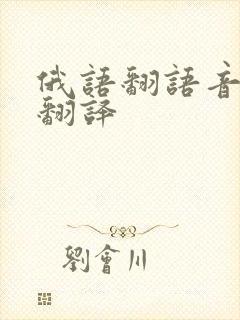 俄語翻語音
翻譯
劉會川